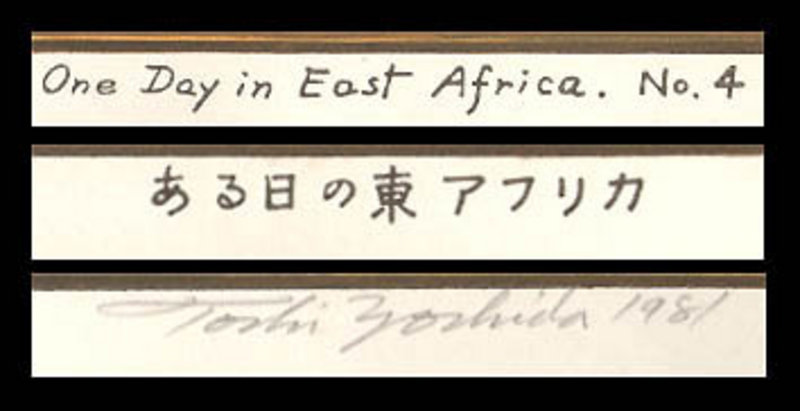 One Day in East Africa. No. 4
ある日の東アフリカ
Toshi Yoshida 1981